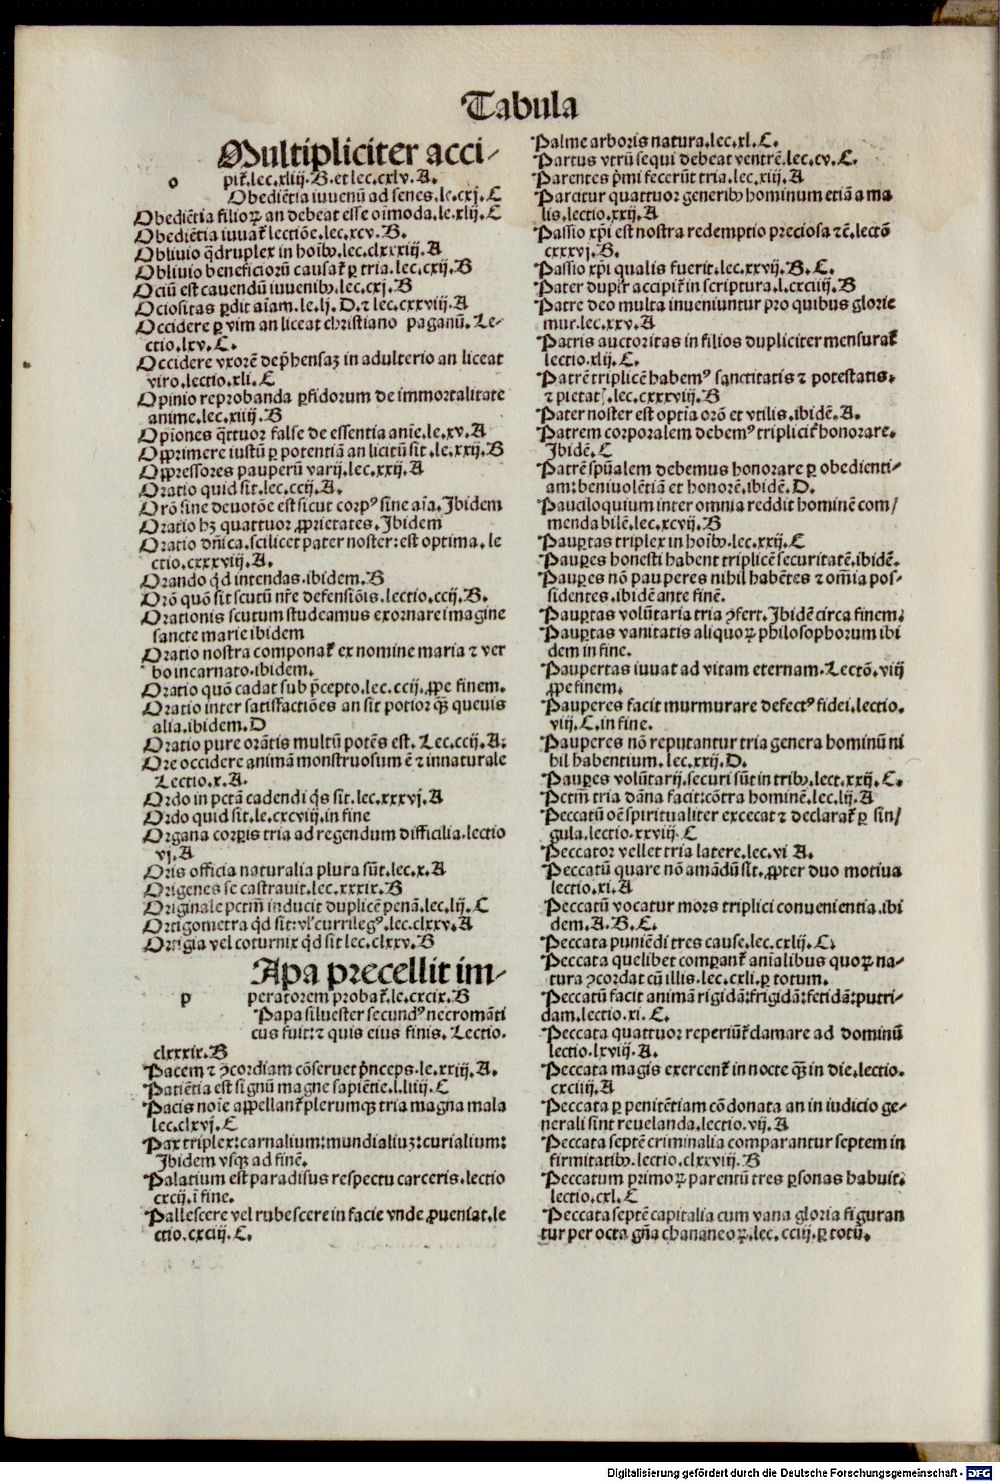 Tabula
Multipliciter acci-
o pit̃.lec.xliij.B.et lec.cxlv.A.
Obediẽtia iuuenũ ad senes.le.cxj.C
Obediẽtia filioꝝ an debeat esse oĩmoda.le.xlij.C
Obediẽtia iuuat̃ lectiõe.lec.xcv.B.
Obliuio q̃druplex in hoĩbꝰ.lec.clxxxiij.A
Obliuio beneficiorũ causat̃ ꝑ tria.lec.cxij.B
Ociũ est cauendũ iuuenibꝰ.lec.cxj.B
Ociositas ꝑdit aĩam.le.lj.D.⁊ lec.cxxviij.A
Occidere ꝑ vim an liceat christiano paganũ.Le-
ctio.lxv.C.
Occidere vxorẽ dep̃hensaꝫ in adulterio an liceat
viro.lectio.xli.C
Opinio reprobanda ꝑfidorum de immortalitate
anime.lec.xiiij.B
Opĩones q̃ttuor false de essentia anĩe.le.xv.A
Opprimere iustũ ꝑ potentiã an licitũ sit.le.xxij.B
Oppressores pauperũ varij.lec.xxij.A
Oratio quid sit.lec.ccij.A.
Orõ sine deuotõe est sicut corpꝰ sine aĩa.Ibidem
Oratio hꝫ quattuor ꝓprietates.Ibidem
Oratio dñica.scilicet pater noster:est optima.le
ctio.cxxxviij.A.
Orando qd̃ intendas.ibidem.B
Orõ quõ sit scutũ nr̃e defensiõis.lectio.ccij.B.
Orationis scutum studeamus exornare imagine
sancte marie ibidem
Oratio nostra componat̃ ex nomine maria ⁊ ver
bo incarnato.ibidem.
Oratio quõ cadat sub p̃cepto.lec.ccij.ꝓpe finem.
Oratio inter satisfactiões an sit potior q̃ꝫ queuis
alia.ibidem.D
Oratio pure orãtis multũ potẽs est.Lec.ccij.A:
Ore occidere animã monstruosum ẽ ⁊ innaturale
Lectio.x.A.
Ordo in pctã cadendi q̃s sit.lec.xxxvj.A
Ordo quid sit.le.cxcviij.in fine
Organa corꝑis tria ad regendum difficilia.lectio
vj.A
Oris officia naturalia plura sũt.lec.x.A
Origenes se castrauit.lec.xxxix.B
Originale pctm̃ inducit duplicẽ penã.lec.lij.C
Ortigometra qd̃ sit:vl̃ currilegꝰ.lec.clxxv.A
Ortigia vel coturnix qd̃ sit lec.clxxv.B
Apa precellit im-
p peratorem probat̃.le.cxcix.B
Papa siluester secundꝰ necromãti
cus fuit:⁊ quis eius finis.Lectio.
clxxxix.B
Pacem ⁊ ꝯcordiam cõseruet p̃nceps.le.xxiij.A.
Patiẽtia est signũ magne sapiẽtie.l.liiij.C
Pacis noĩe appellant̃ plerumqꝫ tria magna mala
lec.clxvj.C
Pax triplex:carnalium:mundialiuꝫ:curialium:
Ibidem vsqꝫ ad finẽ.
Palatium est paradisus respectu carceris.lectio
cxcij.ĩ fine.
Pallescere vel rubescere in facie vnde ꝓueniat.le
ctio.cxciij.C.
Palme arboris natura.lec.xl.C.
Partus vtrũ sequi debeat ventrẽ.lec.cv.C.
Parentes p̃mi fecerũt tria.lec.xiij.A
Parcitur quattuor generibꝰ hominum etiã a ma
lis.lectio.xxij.A
Passio xp̃i est nostra redemptio preciosa ⁊c̃.lectõ
cxxxvj.B.
Passio xp̃i qualis fuerit.lec.xxvij.B.C.
Pater duplr̃ accipit̃ in scriptura.l.cxciij.B
Patre deo multa inueniuntur pro quibus glorie
mur.lec.xxv.A
Patris auctoritas in filios dupliciter mensurat̃
lectio.xlij.C.
Patrẽ triplicẽ habemꝰ sanctitatis ⁊ potestatis.
⁊ pietatꝭ.lec.cxxxviij.B
Pater noster est optĩa orõ et vtilis.ibidẽ.A.
Patrem corporalem debemꝰ triplicit̃ honorare.
Ibidẽ.C
Patrẽ spũalem debemus honorare ꝑ obedienti-
am:beniuolẽtiã et honorẽ.ibidẽ.D.
Pauciloquium inter omnia reddit hominẽ com/
mendabilẽ.lec.xcvij.B
Pauꝑtas triplex in hoĩbꝰ.lec.xxij.C
Pauꝑes honesti habent triplicẽ securitatẽ.ibidẽ.
Pauꝑes nõ pauperes nihil habẽtes ⁊ om̃ia pos-
sidentes.ibidẽ ante finẽ.
Pauꝑtas volũtaria tria ꝯfert.Ibidẽ circa finem:
Pauꝑtas vanitatis aliquoꝝ philosophorum ibi
dem in fine.
Paupertas iuuat ad vitam eternam.Lectõ.viij
ꝓpe finem.
Pauperes facit murmurare defectꝰ fidei.lectio.
viij.C.in fine.
Pauperes nõ reputantur tria genera hominũ ni
hil habentium.lec.xxij.D.
Pauꝑes volũtarij.securi sũt in tribꝰ.lect.xxij.C.
Pctm̃ tria dãna facit:cõtra hominẽ.lec.lij.A
Peccatũ oẽ spiritualiter excecat ⁊ declarat̃ ꝑ sin/
gula.lectio.xxviij.C
Peccator vellet tria latere.lec.vi A.
Peccatũ quare nõ amãdũ sit.ꝓpter duo motiua
lectio.xi.A
Peccatũ vocatur mors triplici conuenientia.ibi
dem.A.B.C.
Peccata puniẽdi tres cause.lec.cxlij.C.
Peccata quelibet comꝑant̃ anĩalibus quoꝝ na-
tura ꝯcordat cũ illis.lec.cxli.ꝑ totum.
Peccatũ facit animã rigidã:frigidã:fetidã:putri-
dam.lectio.xi.C.
Peccata quattuor reperiũt̃ clamare ad dominũ
lectio.lxviij.A.
Peccata magis exercent̃ in nocte q̃ꝫ in die.lectio.
cxciiij.A
Peccata ꝑ penitẽtiam cõdonata an in iudicio ge-
nerali sint reuelanda.lectio.vij.A
Peccata septẽ criminalia comparantur septem in
firmitatibꝰ.lectio.clxxviij.B
Peccatum primoꝝ parentũ tres ꝑsonas habuit.
lectio.cxl.C
Peccata septẽ capitalia cum vana gloria figuran
tur per octa gña chananeoꝝ.lec.cciij.ꝑ totũ.
Digitalisierung gefördert durch die Deutsche Forschungsgemeinschaft - DFG